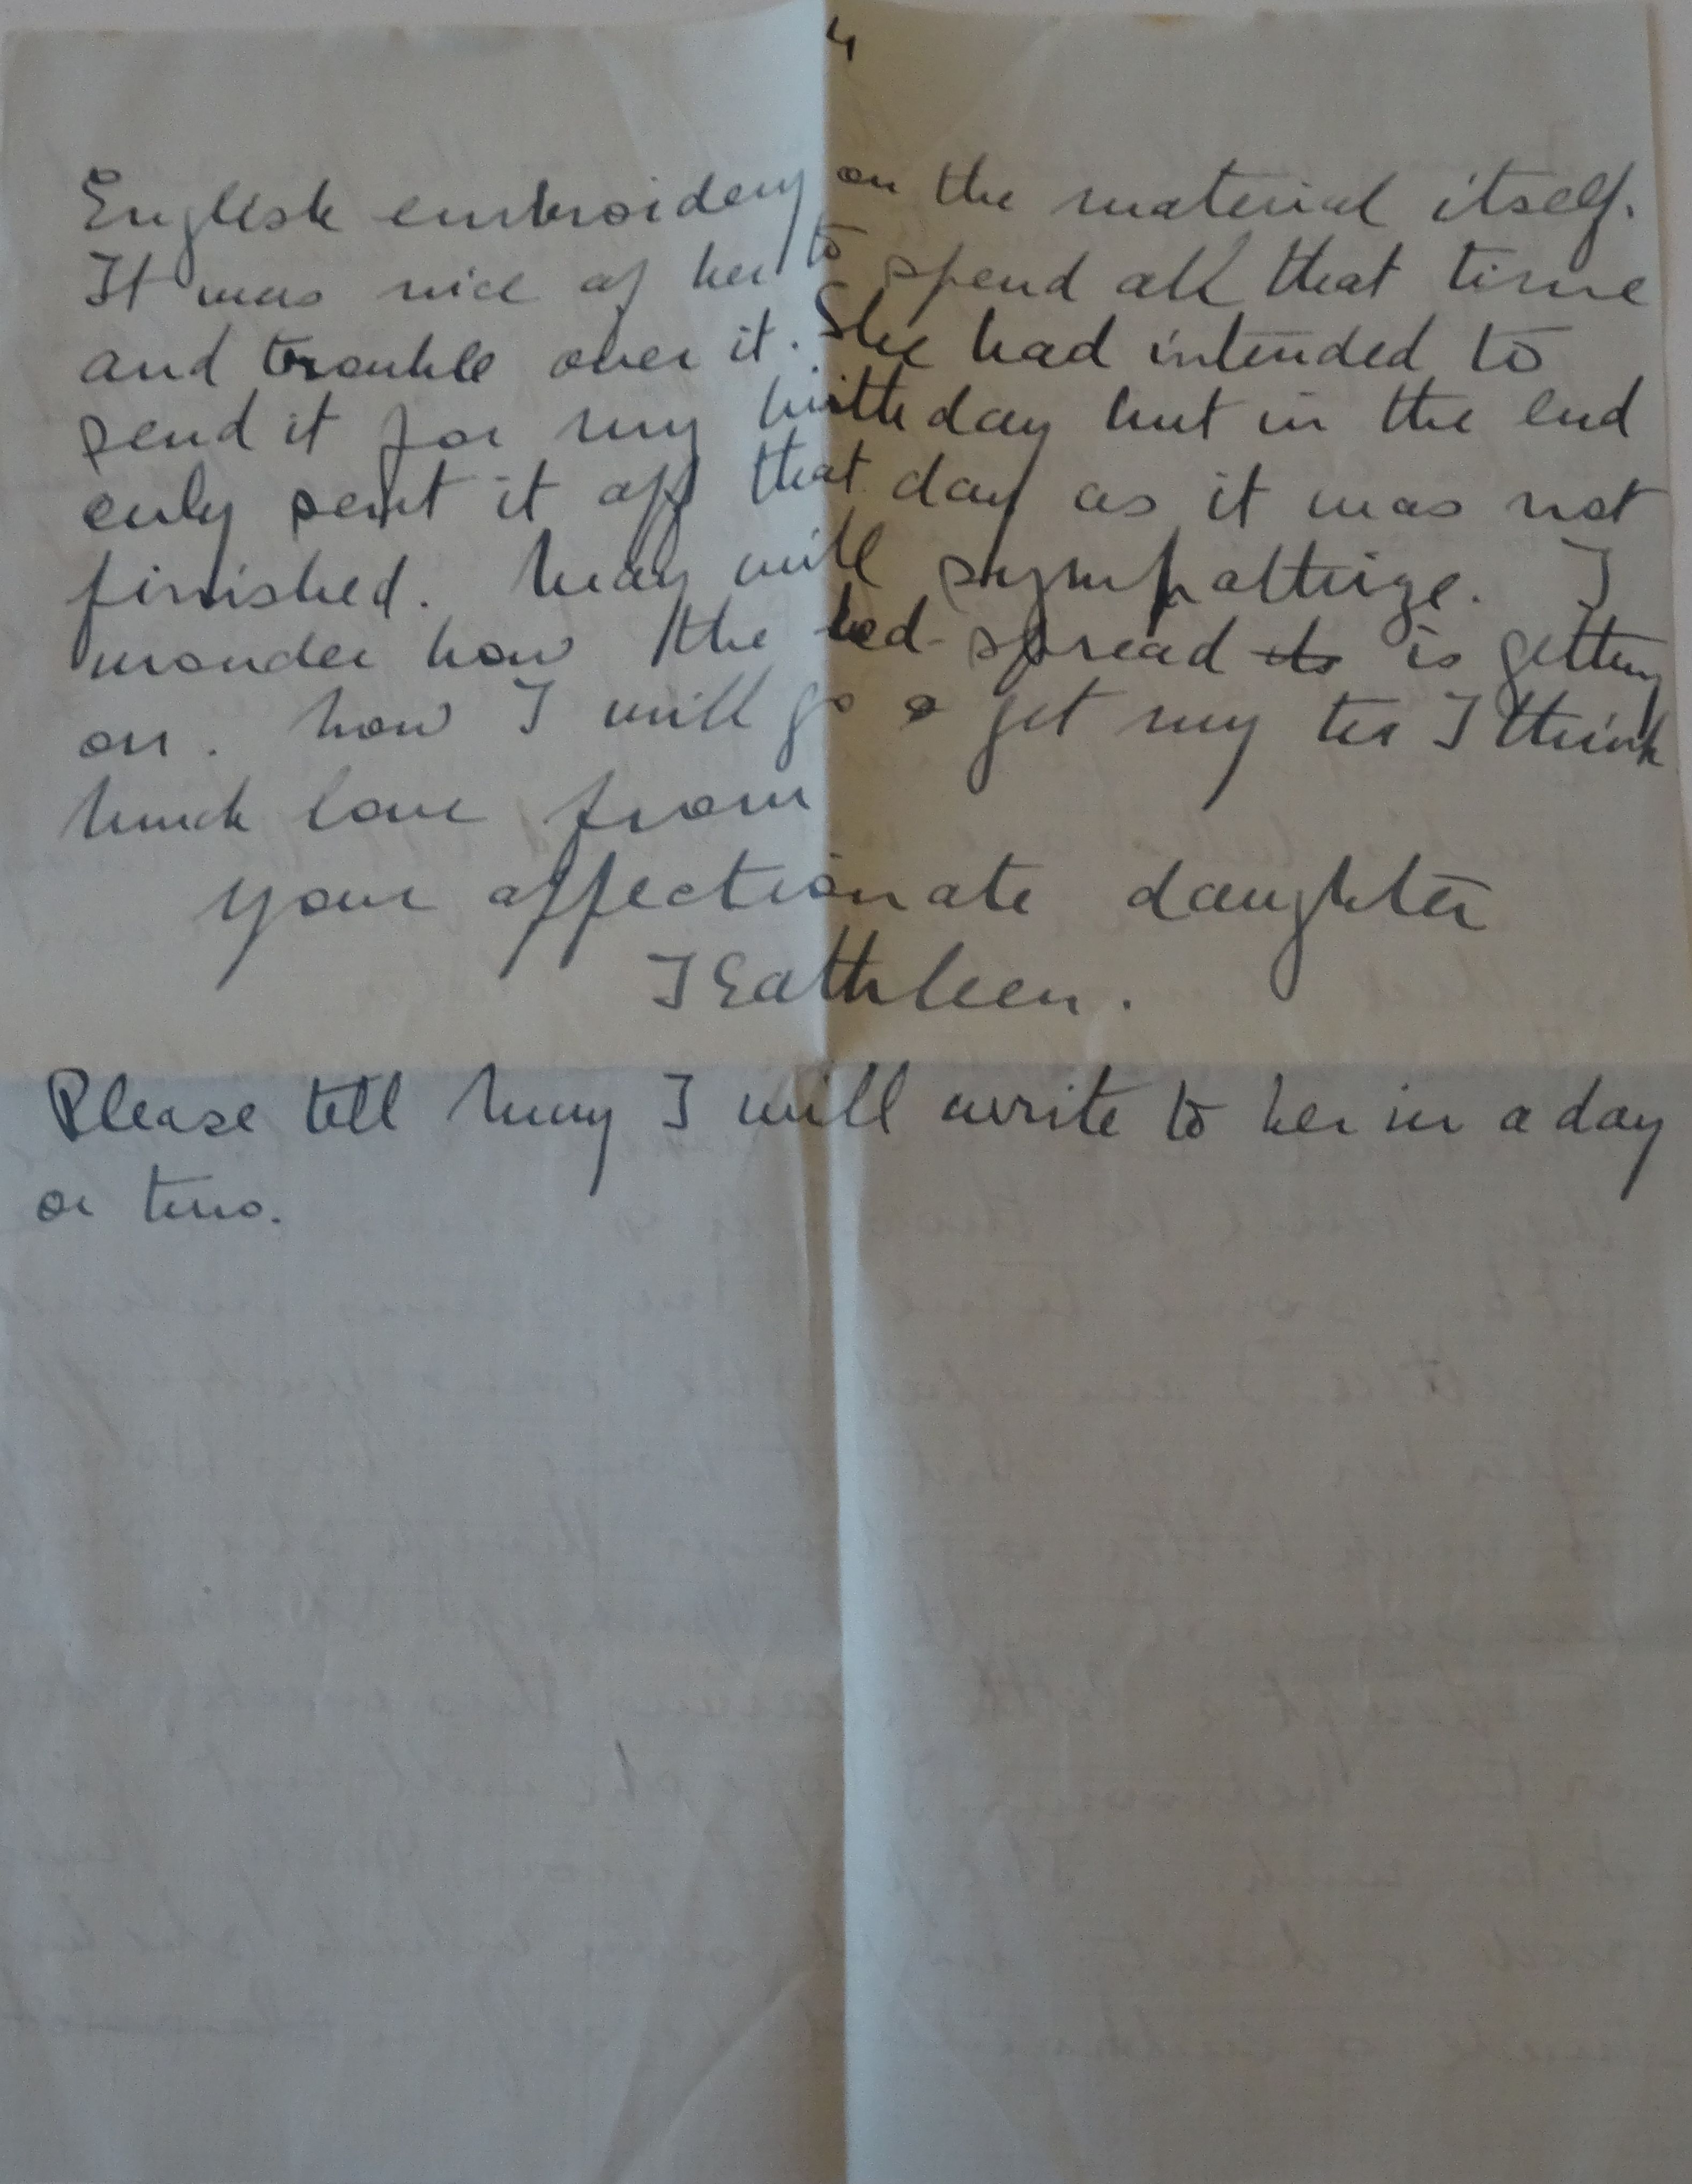 4
English embroidery on the material itself.
It was nice of her to spend all that time
and trouble over it. She had intended to
send it for my birthday but in the end
only sent it off that day as it was not
finished. May will sympathize. I
wonder how the bed-spread its is getting
on. Now I will go & get my tea I think
Much love from
your affectionate daughter
Kathleen.
Please tell May I will write to her in a day
or two.